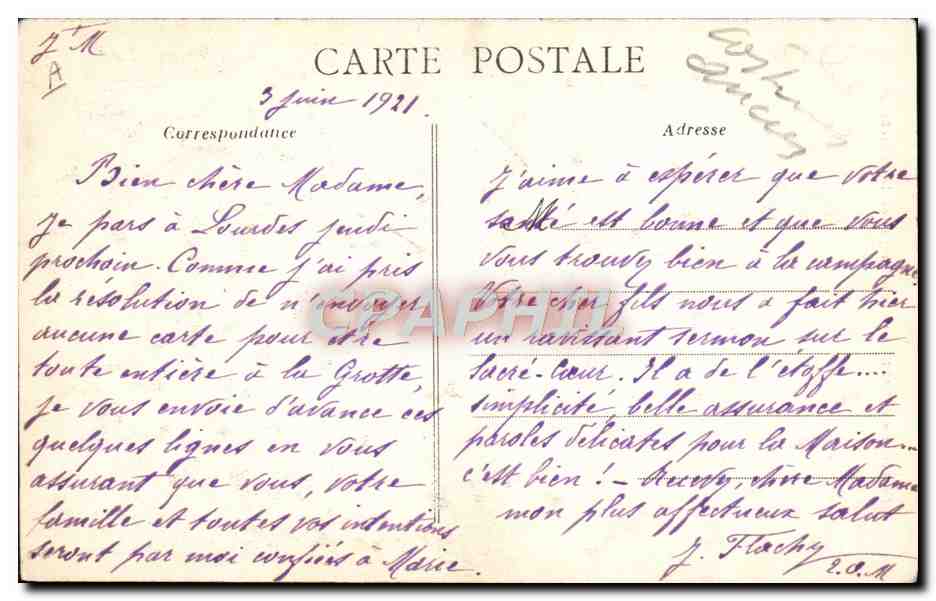 J M
A
CARTE POSTALE
3 Juin 1921.
Correspondance
Bien chère Madame,
Je pars à Lourdes jeudi
prochain. Comme j'ai pris
la résolution de n'envoyer
aucune carte pour être
toute entière à la Grotte,
je vous envoie d'avance ces
quelques lignes en vous
assurant que vous, votre
famille et toutes vos intentions
seront par moi confiées à Marie.
Adresse
J'aime à espérer que votre
santé est bonne et que vous
vous trouvez bien à la campagne
Votre cher fils nous a fait hier
un ravissant sermon sur le
Sacré-Cœur. Il a de l'étoffe....
simplicité, belle assurance et
paroles délicates pour la Maison...
c'est bien! - Recevez, chère Madame
mon plus affectueux salut
J. Flachy
CPAPHIL